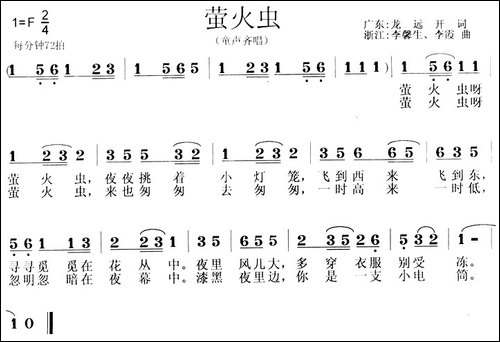 萤火虫
(童声齐唱)
1=F 2/4
每分钟72拍
广东:龙远开 词
浙江:李馨生、李霞 曲
(1 56 | 1 23 | 1 0565 | 1 23 | 1 56 | 1 1) | 1 5611 |
萤火虫呀
萤火虫呀
1 23 2 | 335 32 | 1 23 5 | 335 6 | 565 3 |
萤火虫,夜夜挑着小灯笼,飞到西来飞到东,
萤火虫,来也匆匆去匆匆,一时高来一时低,
5561 123 | 2 13 | 2·3 | 2 123 | 2 356 | 223 6 5 | 1 - |
寻寻觅觅在花丛中。夜里风儿大,多穿衣服别受冻。
忽明忽暗在夜幕中。漆黑夜里边,你是一支小电筒。
1 0